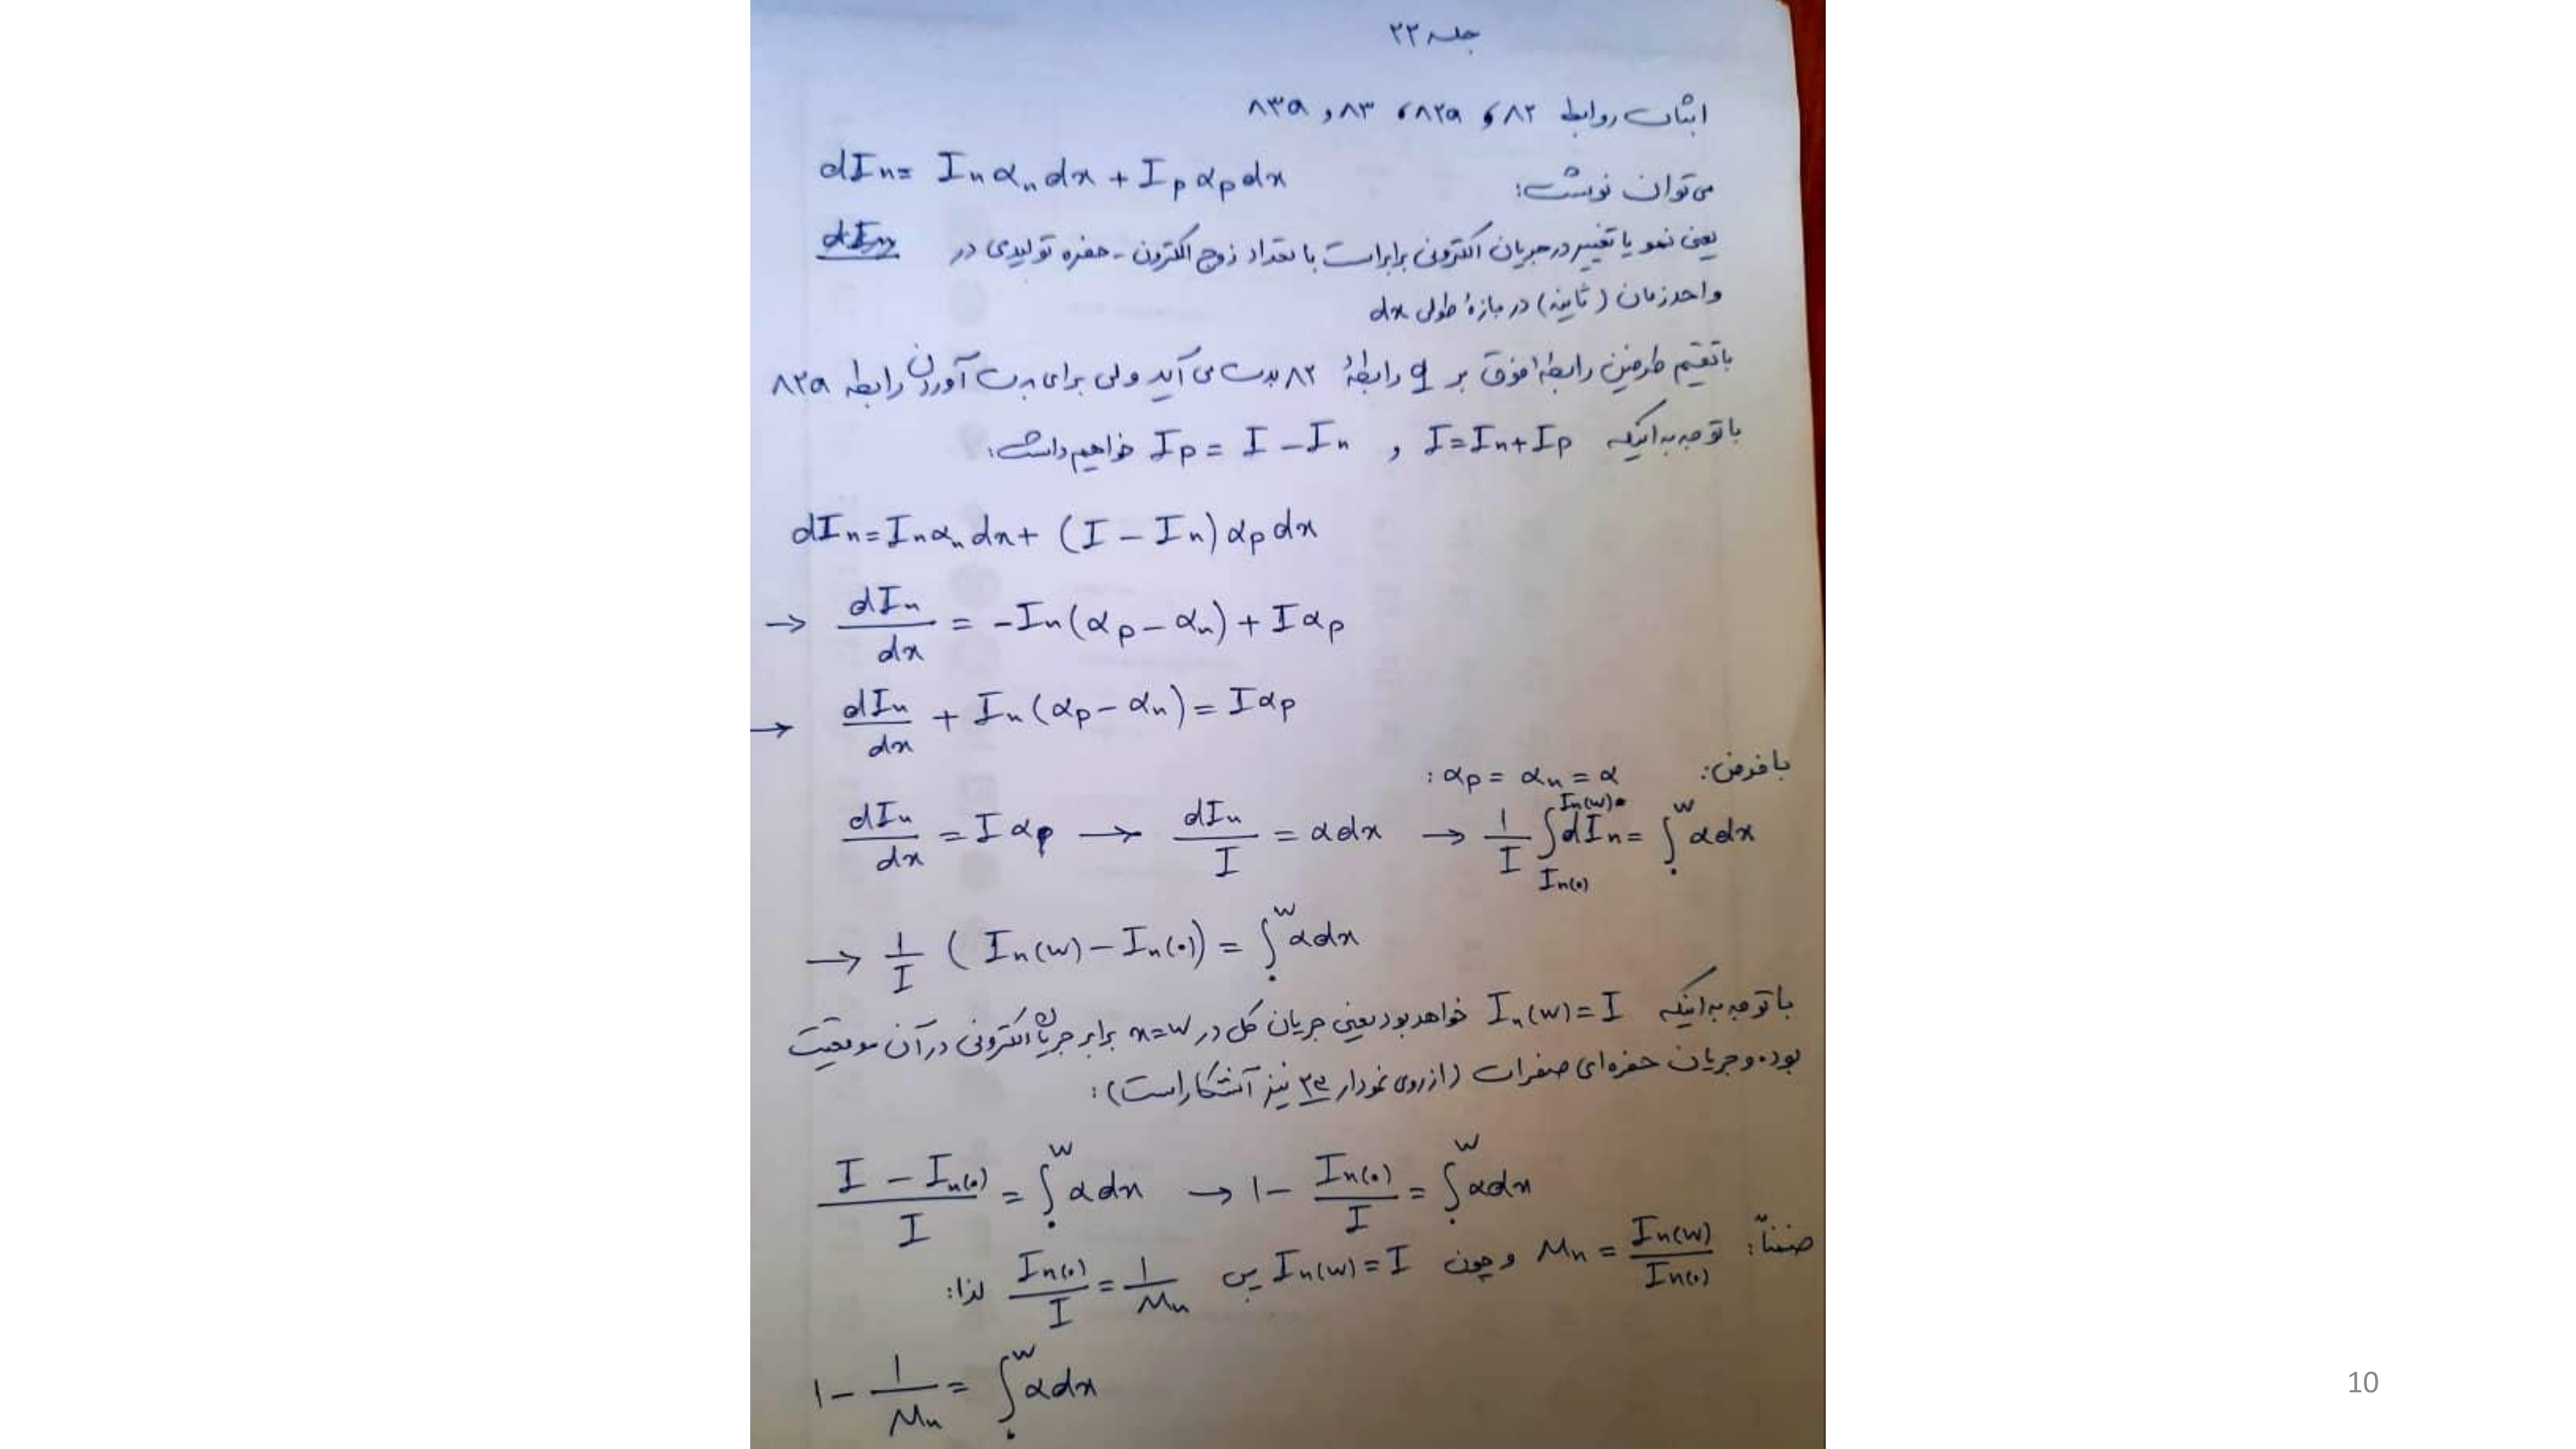 جلسه ۲۲
اثبات روابط ۸۲ و ۸۲a، ۸۳ و ۸۳a
می‌توان نوشت: dIn = In αn dx + Ip αp dx
یعنی نمو یا تغییر در جریان الکترونی برابر است با تعداد زوج الکترون - حفره تولیدی در
واحد زمان (ثانیه) در بازهٔ طولی dx
با تقسیم طرفین رابطهٔ فوق بر q رابطهٔ ۸۲ بدست می آید ولی برای بدست آوردن رابطه ۸۲a
با توجه به اینکه I = In + Ip و Ip = I - In خواهیم داشت:
dIn = In αn dx + (I - In) αp dx
→ dIn/dx = -In (αp - αn) + I αp
→ dIn/dx + In (αp - αn) = I αp
با فرض: αp = αn = α :
dIn/dx = I αp → dIn/I = α dx → 1/I ∫_{In(0)}^{In(w)} dIn = ∫_0^w α dx
→ 1/I ( In(w) - In(0) ) = ∫_0^w α dx
با توجه به اینکه In(w) = I خواهد بود یعنی جریان کل در x=w برابر جریان الکترونی در آن موقعیت
بوده و جریان حفره‌ای صفر است (از روی نمودار نیز آشکار است):
(I - In(0))/I = ∫_0^w α dx → 1 - In(0)/I = ∫_0^w α dx
ضمناً: Mn = In(w)/In(0) و چون In(w) = I پس In(0)/I = 1/Mn لذا:
1 - 1/Mn = ∫_0^w α dx
10